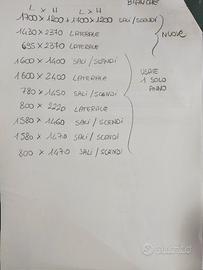 BIANCHE
L x H L x H
1700 x 1200 + 1100 x 1200 SALI/SCENDI
1430 x 2370 LATERALE
695 x 2370 LATERALE
NUOVE
1600 x 1400 SALI/SCENDI
1600 x 2400 LATERALE
780 x 1450 SALI/SCENDI
800 x 2220 LATERALE
1580 x 1460 SALI/SCENDI
1580 x 1470 SALI/SCENDI
800 x 1470 SALI/SCENDI
USATE
1 SOLO
ANNO
subito